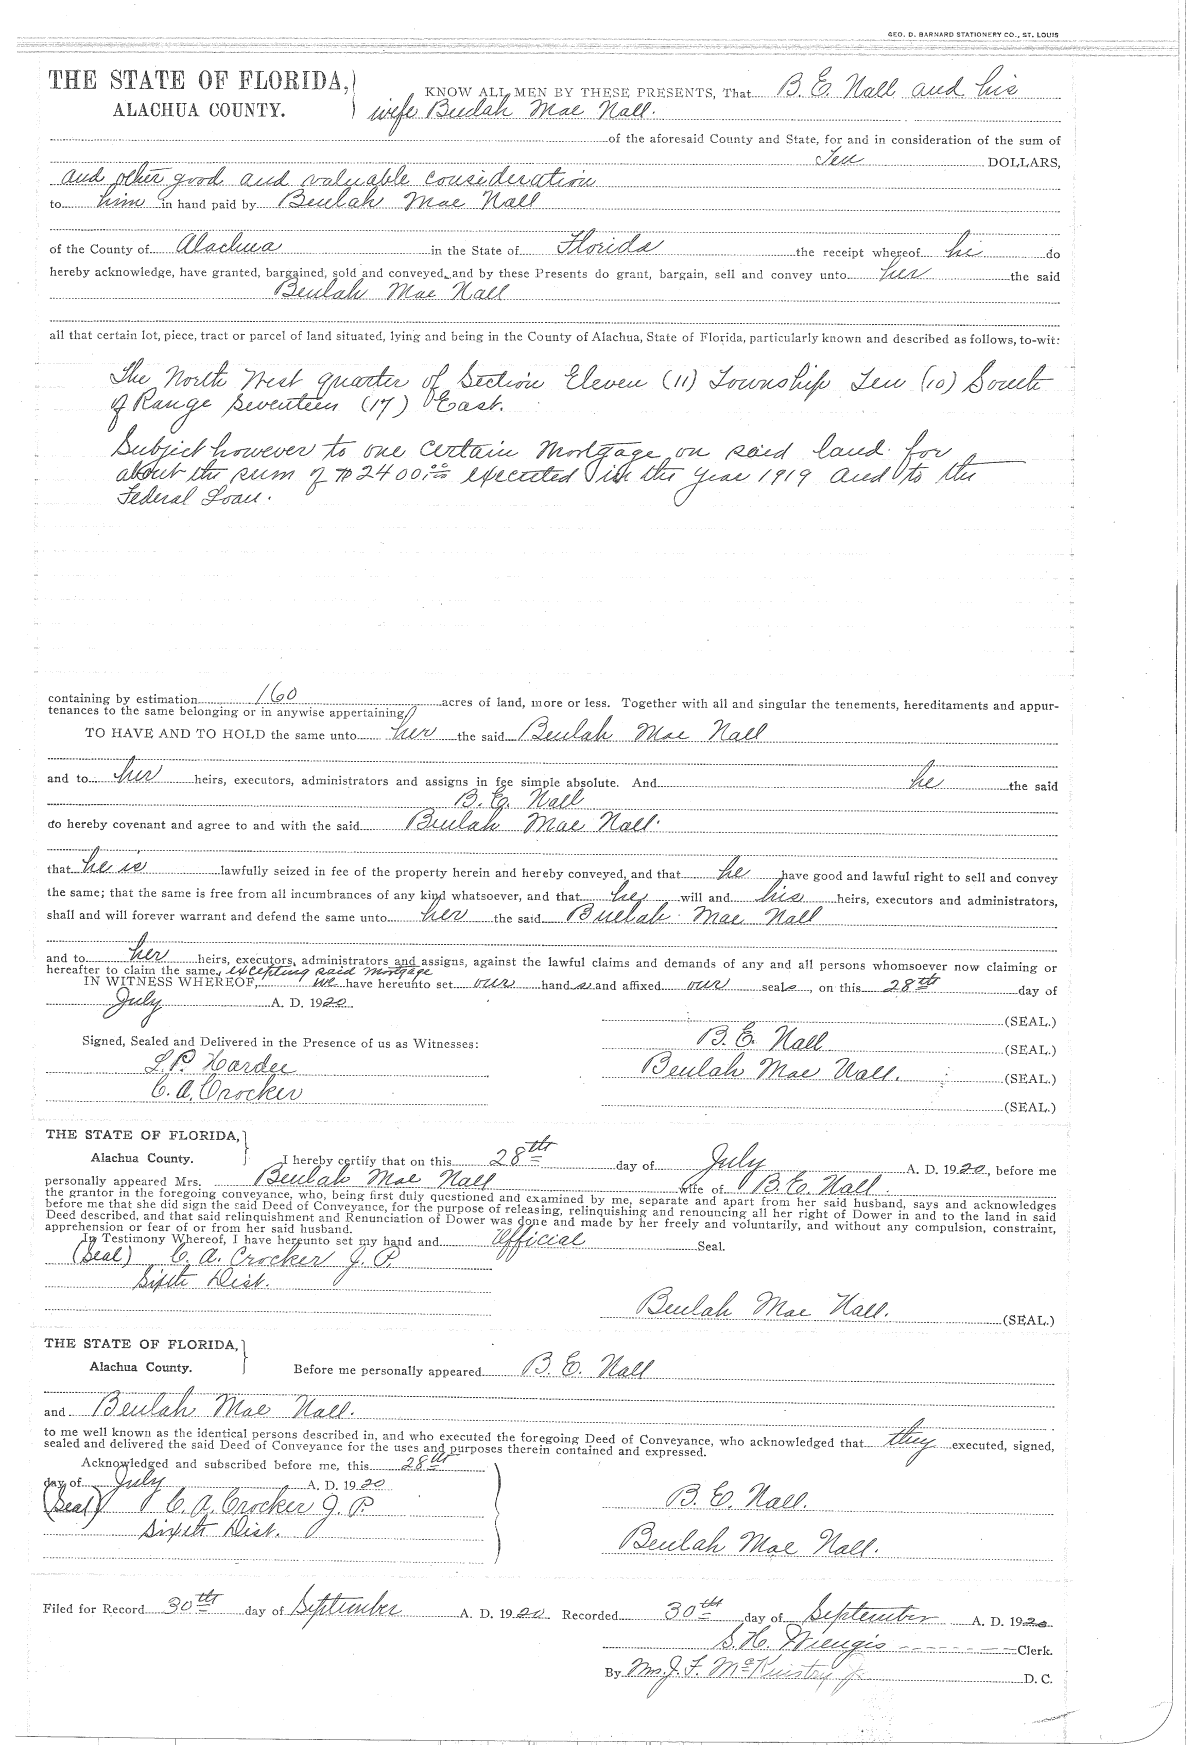 GEO. D. BARNARD STATIONERY CO., ST. LOUIS
THE STATE OF FLORIDA,
ALACHUA COUNTY.
KNOW ALL MEN BY THESE PRESENTS, That B. E. Nall and his
wife Beulah Mae Nall.
of the aforesaid County and State, for and in consideration of the sum of
Ten DOLLARS,
and other good and valuable consideration
to him in hand paid by Beulah Mae Nall
of the County of Alachua in the State of Florida the receipt whereof he do
hereby acknowledge, have granted, bargained, sold and conveyed, and by these Presents do grant, bargain, sell and convey unto her the said
Beulah Mae Nall
all that certain lot, piece, tract or parcel of land situated, lying and being in the County of Alachua, State of Florida, particularly known and described as follows, to-wit:
The North West quarter of Section Eleven (11) Township Ten (10) South
of Range Seventeen (17) East.
Subject however to one certain Mortgage on said land for
about the sum of $2400.00 executed in the year 1919 and to the
Federal Loan.
containing by estimation 160 acres of land, more or less. Together with all and singular the tenements, hereditaments and appur-
tenances to the same belonging or in anywise appertaining
TO HAVE AND TO HOLD the same unto her the said Beulah Mae Nall
and to her heirs, executors, administrators and assigns in fee simple absolute. And he the said
B. E. Nall
do hereby covenant and agree to and with the said Beulah Mae Nall.
that he is lawfully seized in fee of the property herein and hereby conveyed, and that he have good and lawful right to sell and convey
the same; that the same is free from all incumbrances of any kind whatsoever, and that he will and his heirs, executors and administrators,
shall and will forever warrant and defend the same unto her the said Buelah Mae Nall
and to her heirs, executors, administrators and assigns, against the lawful claims and demands of any and all persons whomsoever now claiming or
hereafter to claim the same, excepting said mortgage
IN WITNESS WHEREOF, we have hereunto set our hand s and affixed our seal s, on this 28th day of
July A. D. 1920
(SEAL.)
Signed, Sealed and Delivered in the Presence of us as Witnesses:
B. E. Nall (SEAL.)
L. P. Hardee
Beulah Mae Nall. (SEAL.)
C. A. Crocker
(SEAL.)
THE STATE OF FLORIDA,
Alachua County.
I hereby certify that on this 28th day of July A. D. 1920, before me
personally appeared Mrs. Beulah Mae Nall wife of B. E. Nall.
the grantor in the foregoing conveyance, who, being first duly questioned and examined by me, separate and apart from her said husband, says and acknowledges
before me that she did sign the said Deed of Conveyance, for the purpose of releasing, relinquishing and renouncing all her right of Dower in and to the land in said
Deed described, and that said relinquishment and Renunciation of Dower was done and made by her freely and voluntarily, and without any compulsion, constraint,
apprehension or fear of or from her said husband.
In Testimony Whereof, I have hereunto set my hand and Official Seal.
(Seal) C. A. Crocker J. P.
Sixth Dist.
Beulah Mae Nall. (SEAL.)
THE STATE OF FLORIDA,
Alachua County.
Before me personally appeared B. E. Nall
and Beulah Mae Nall.
to me well known as the identical persons described in, and who executed the foregoing Deed of Conveyance, who acknowledged that they executed, signed,
sealed and delivered the said Deed of Conveyance for the uses and purposes therein contained and expressed.
Acknowledged and subscribed before me, this 28th
day of July A. D. 1920
(Seal) C. A. Crocker J. P.
Sixth Dist.
B. E. Nall.
Beulah Mae Nall.
Filed for Record 30th day of September A. D. 1920 Recorded 30th day of September A. D. 1920
S. H. Wienges Clerk.
By Mrs. J. F. McKinstry Jr D. C.